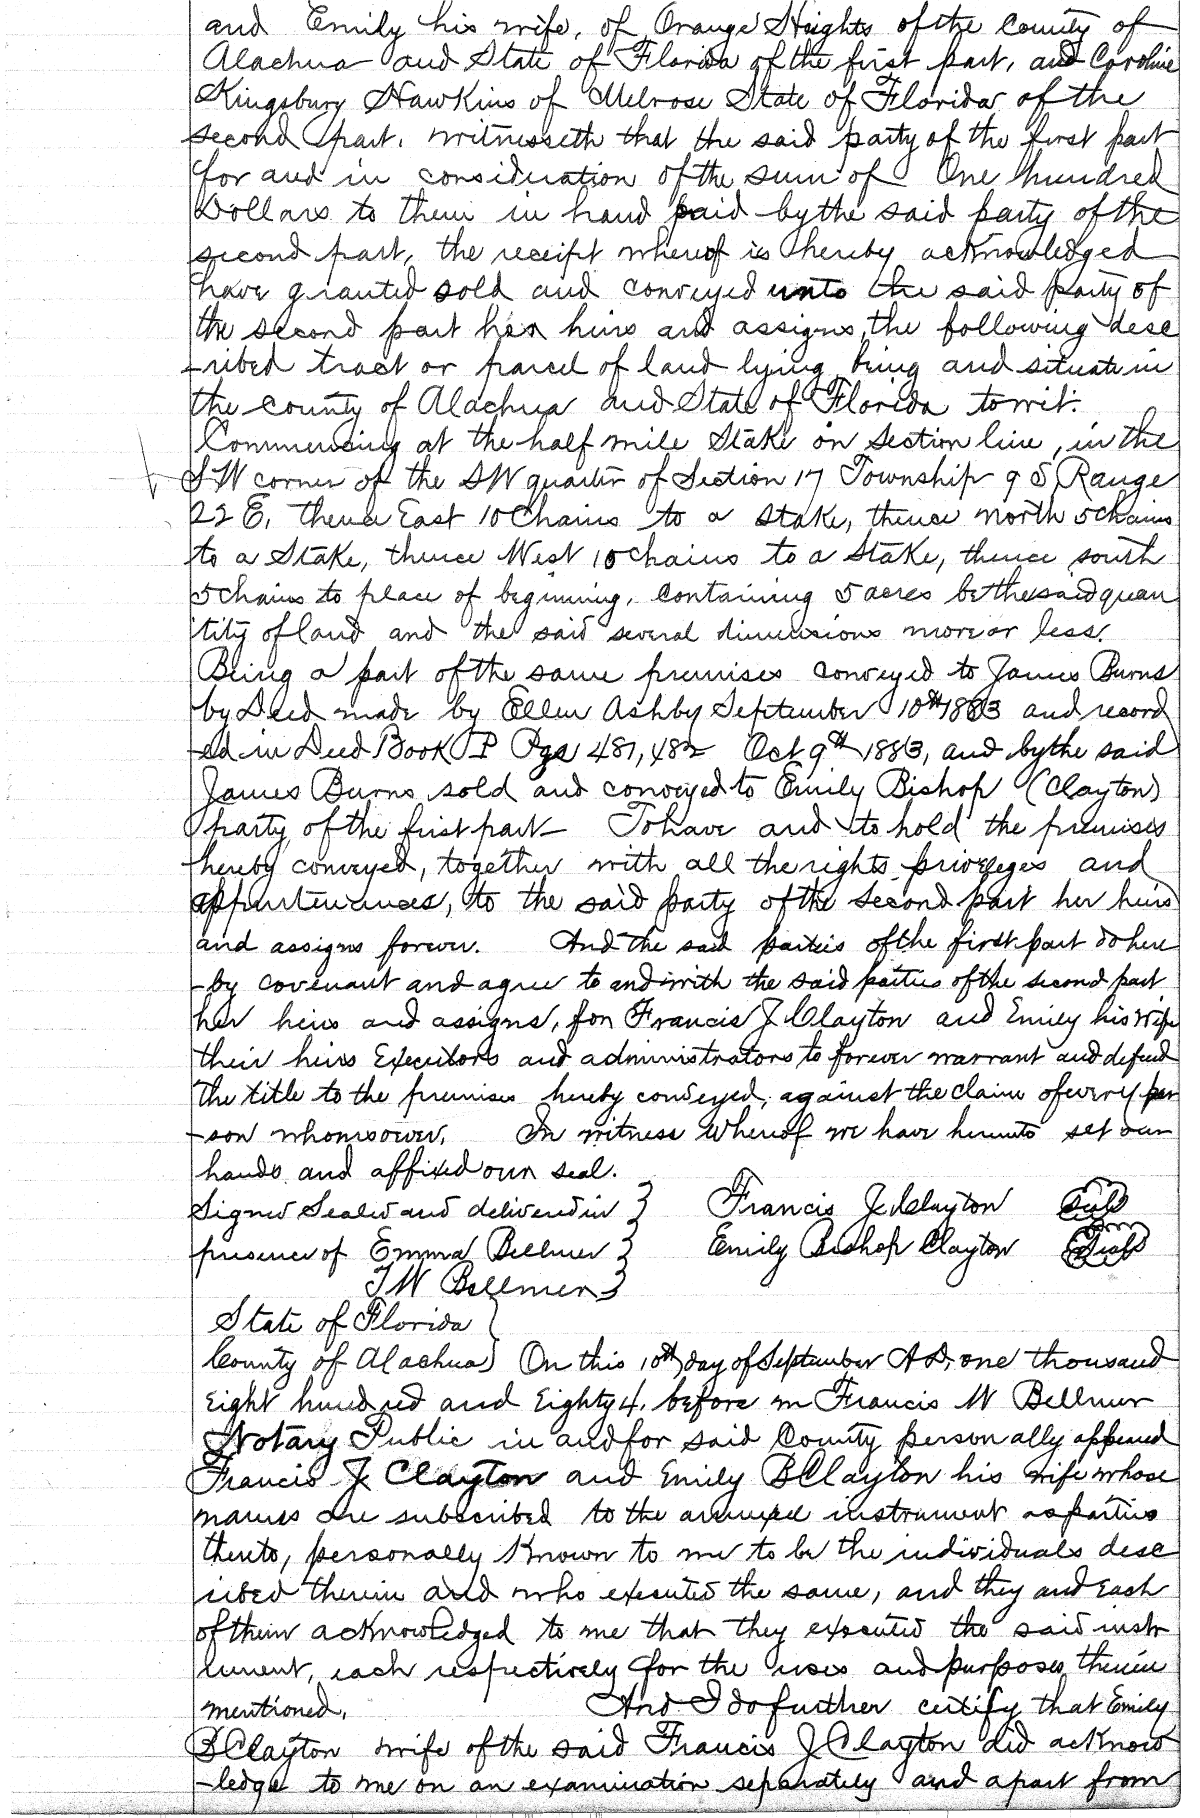 and Emily his wife, of Orange Heights of the County of
Alachua and State of Florida of the first part, and Caroline
Kingsbury Hawkins of Melrose State of Florida of the
second part. witnesseth that the said party of the first part
for and in consideration of the sum of One hundred
Dollars to them in hand paid by the said party of the
second part, the receipt whereof is hereby acknowledged
have granted sold and conveyed unto the said party of
the second part her heirs and assigns, the following desc
-ribed tract or parcel of land lying being and situate in
the county of Alachua and State of Florida to wit:
Commencing at the half mile Stake on section line, in the
SW corner of the SW quarter of Section 17 Township 9 S Range
22 E, thence East 10 Chains to a stake, thence north 5 chains
to a Stake, thence West 10 chains to a Stake, thence south
5 chains to place of beginning, containing 5 acres be the said quan
tity of land and the said several dimensions more or less.
Being a part of the same premises conveyed to James Burns
by Deed made by Ellen Ashby September 10th 1883 and record
-ed in Deed Book P Pgs 481, 482 Oct 9th 1883, and by the said
James Burns sold and conveyed to Emily Bishop (Clayton)
party of the first part - To have and to hold the premises
hereby conveyed, together with all the rights privileges and
appurtenances, to the said party of the second part her heirs
and assigns forever. And the said parties of the first part do here
-by covenant and agree to and with the said parties of the second part
her heirs and assigns, for Francis J Clayton and Emily his wife
their heirs Executors and administrators to forever warrant and defend
the title to the premises hereby conveyed, against the claim of every per
-son whomsoever. In witness Whereof we have hereunto set our
hands and affixed our seal.
Signed Sealed and delivered in } Francis J Clayton Seal
presence of Emma Bellmer } Emily Bishop Clayton Seal
T W Bellmer }
State of Florida }
County of Alachua } On this 10th day of September AD, one thousand
Eight hundred and Eighty 4, before m Francis W Bellmer
Notary Public in and for said County personally appeared
Francis J Clayton and Emily B Clayton his wife whose
names are subscribed to the annexed instrument as parties
thereto, personally Known to me to be the individuals desc
ribed therein and who executed the same, and they and Each
of them acknowledged to me that they executed the said instr
ument, each respectively for the uses and purposes therein
mentioned, And I do further certify that Emily
B Clayton wife of the said Francis J Clayton did acknow
-ledge to me on an examination separately and apart from